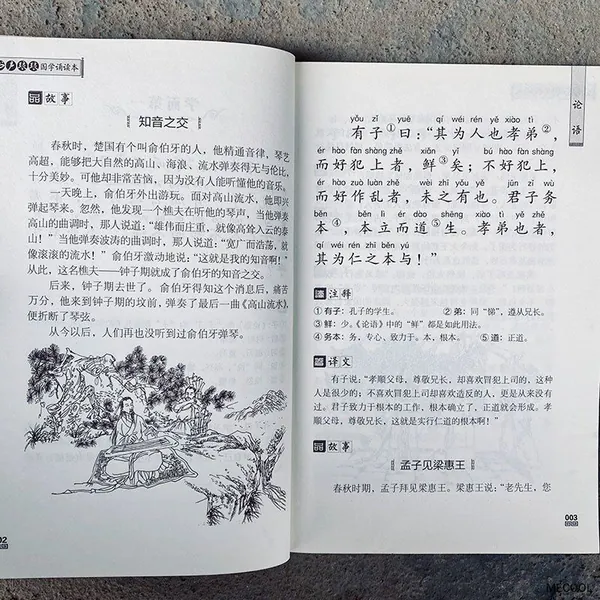 国学诵读本
故事
知音之交
春秋时，楚国有个叫俞伯牙的人，他精通音律，琴艺
高超，能够把大自然的高山、海浪、流水弹奏得无与伦比，
十分美妙。可他却非常苦恼，因为没有人能听懂他的音乐。
一天晚上，俞伯牙外出游玩。面对高山流水，他即兴
弹起琴来。忽然，他发现一个樵夫在听他的琴声，当他弹奏
高耸的曲调时，那人说道：“雄伟而庄重，就像高耸入云的泰
山！”当他弹奏波涛的曲调时，那人说道：“宽广而浩荡，就
像滚滚的流水！”俞伯牙激动地说：“这就是我的知音啊！”
从此，这名樵夫——钟子期就成了俞伯牙的知音之交。
后来，钟子期去世了。俞伯牙得知这个消息后，痛苦
万分，他来到钟子期的坟前，弹奏了最后一曲《高山流水》，
便折断了琴弦。
从今以后，人们再也没听到过俞伯牙弹琴。
02
论语
yǒu zǐ yuē qí wéi rén yě xiào tì
有子①曰：“其为人也孝弟②，
ér hào fàn shàng zhě xiǎn yǐ bú hào fàn shàng
而好犯上者，鲜③矣；不好犯上，
ér hào zuò luàn zhě wèi zhī yǒu yě jūn zǐ wù
而好作乱者，未之有也。君子务
běn běn lì ér dào shēng xiào tì yě zhě
本④，本立而道⑤生。孝弟也者，
qí wéi rén zhī běn yú
其为仁之本与！”
注释
①有子：孔子的学生。 ②弟：同“悌”，遵从兄长。
③鲜：少。《论语》中的“鲜”都是如此用法。
④务本：务，专心、致力于。本，根本。 ⑤道：正道。
译文
有子说：“孝顺父母，尊敬兄长，却喜欢冒犯上司的，这种
人是很少的；不喜欢冒犯上司却喜欢造反的人，更是从来没有
过。君子致力于根本的工作，根本确立了，正道就会形成。孝
顺父母，尊敬兄长，这就是实行仁道的根本啊！”
故事
孟子见梁惠王
春秋时期，孟子拜见梁惠王。梁惠王说：“老先生，您
003
MECOOL